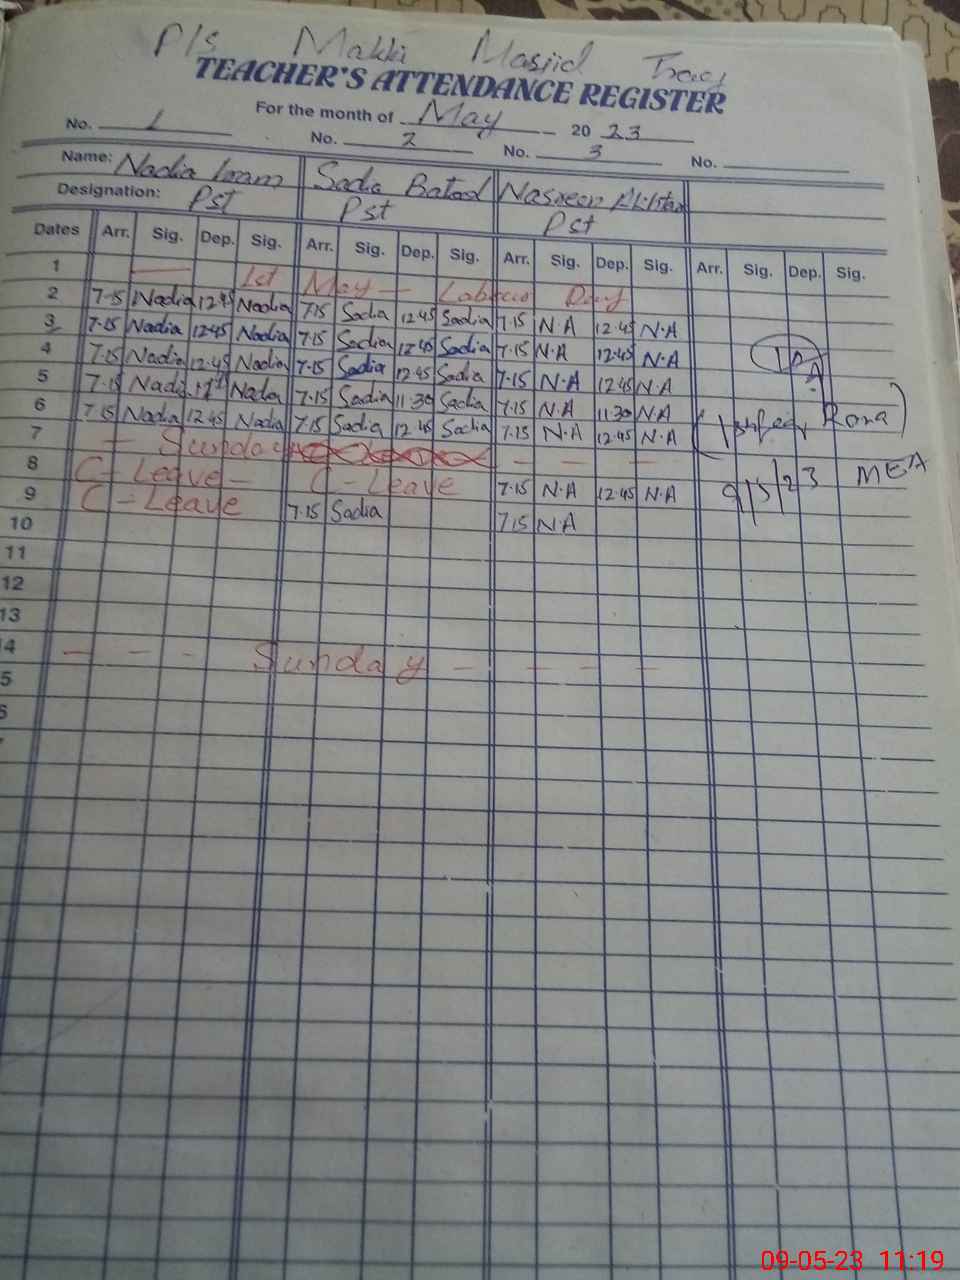 P/S Makki Masjid
TEACHER'S ATTENDANCE REGISTER
For the month of May 2023
No. 1 No. 2 No. 3 No.
Name: Nadia Sadia Batool Nasreen Akhtar
Designation: Pst Pst Pst
Dates Arr. Sig. Dep. Sig. Arr. Sig. Dep. Sig. Arr. Sig. Dep. Sig. Arr. Sig. Dep. Sig.
1 1st May Labour Day
2 7.15 Nadia 12.45 Nadia 7.15 Sadia 12.45 Sadia 7.15 N.A 12.45 N.A
3 7.15 Nadia 12.45 Nadia 7.15 Sadia 12.45 Sadia 7.15 N.A 12.45 N.A
4 7.15 Nadia 12.45 Nadia 7.15 Sadia 12.45 Sadia 7.15 N.A 12.45 N.A
5 7.15 Nadia Nadia 7.15 Sadia 11.30 Sadia 7.15 N.A 11.30 N.A
6 7.15 Nadia 12.45 Nadia 7.15 Sadia 12.45 Sadia 7.15 N.A 12.45 N.A
7 Sunday
8 C- Leave C- Leave 7.15 N.A 12.45 N.A
9 C- Leave 7.15 Sadia 7.15 N.A
10
11
12
13
14 Sunday
5
6
Rana
9/5/23 MEA
09-05-23 11:19